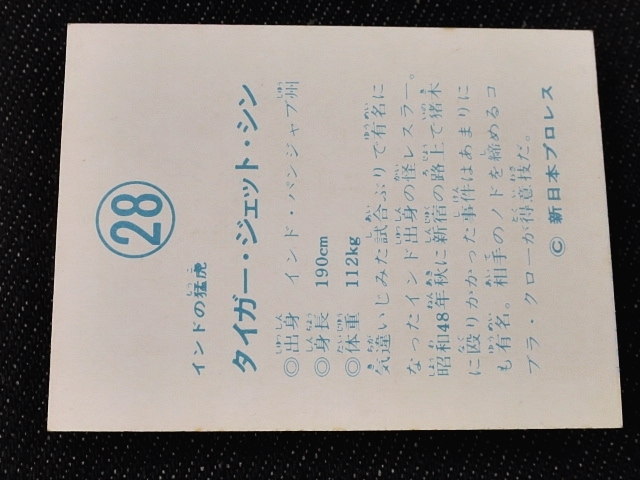 28
インドの猛虎
タイガー・ジェット・シン
◎出身　インド・パンジャブ州
◎身長　190cm
◎体重　112kg
気違いじみた試合ぶりで有名に
なったインド出身の怪レスラー。
昭和48年秋に新宿の路上で猪木
に殴りかかった事件はあまりに
も有名。相手のノドを締めるコ
ブラ・クローが得意技だ。
© 新日本プロレス